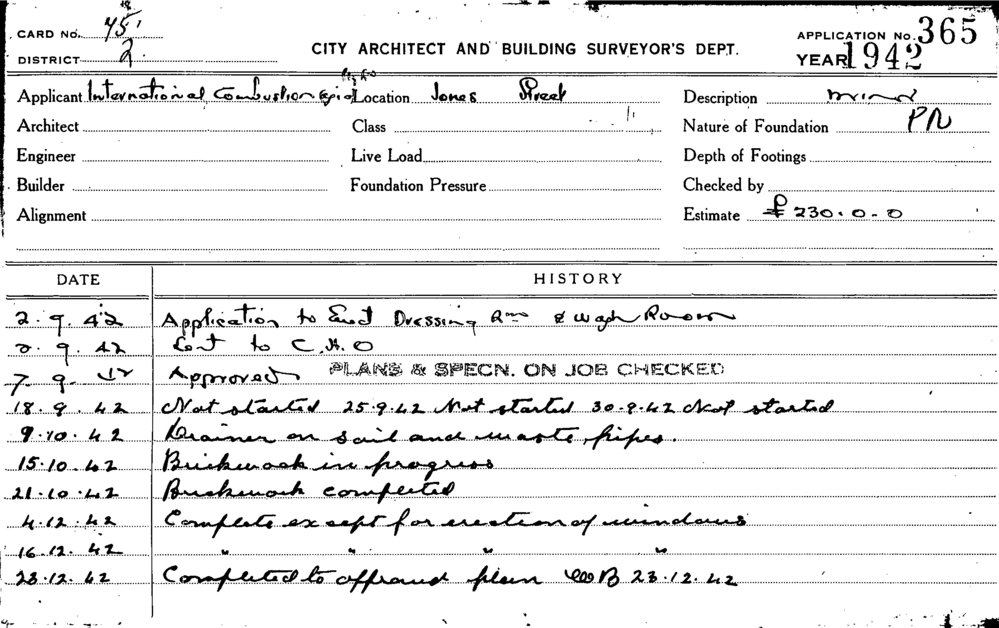 CARD No. 45
APPLICATION No. 365
DISTRICT 2
CITY ARCHITECT AND BUILDING SURVEYOR'S DEPT.
YEAR 1942
Applicant International Combustion Location Jones Street Description
Architect Class Nature of Foundation PN
Engineer Live Load Depth of Footings
Builder Foundation Pressure Checked by
Alignment Estimate £ 230.0.0
DATE HISTORY
2.9.42 Application to Erect Dressing Rm & Wash Room
2.9.42 Sent to C.H.O
7.9.42 Approved PLANS & SPECN. ON JOB CHECKED
18.9.42 Not started 25.9.42 Not started 30.9.42 Not started
9.10.42 Drainer on soil and waste pipes.
15.10.42 Brickwork in progress
21.10.42 Brickwork completed
4.12.42 Complete except for erection of windows
16.12.42 " " " "
23.12.42 Completed to approved plan WB 23.12.42